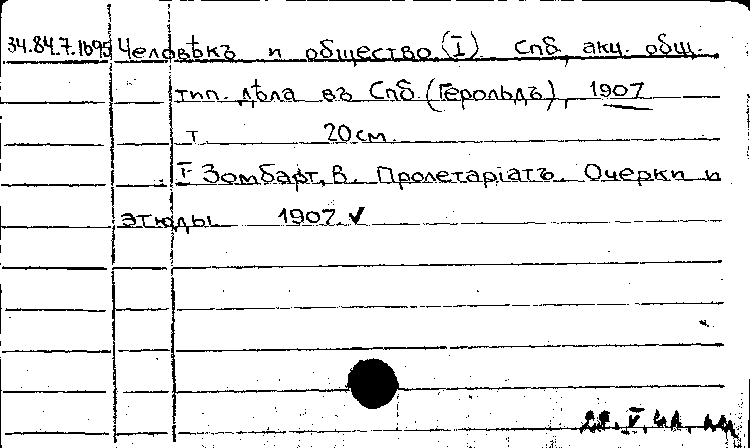 34.84.7.1695 Человѣкъ и общество (I) Спб, акц. общ.
тип. дѣла въ Спб. (Герольдъ), 1907
т. 20 см.
I Зомбарт, В. Пролетаріатъ. Очерки и
этюды 1907. ✓